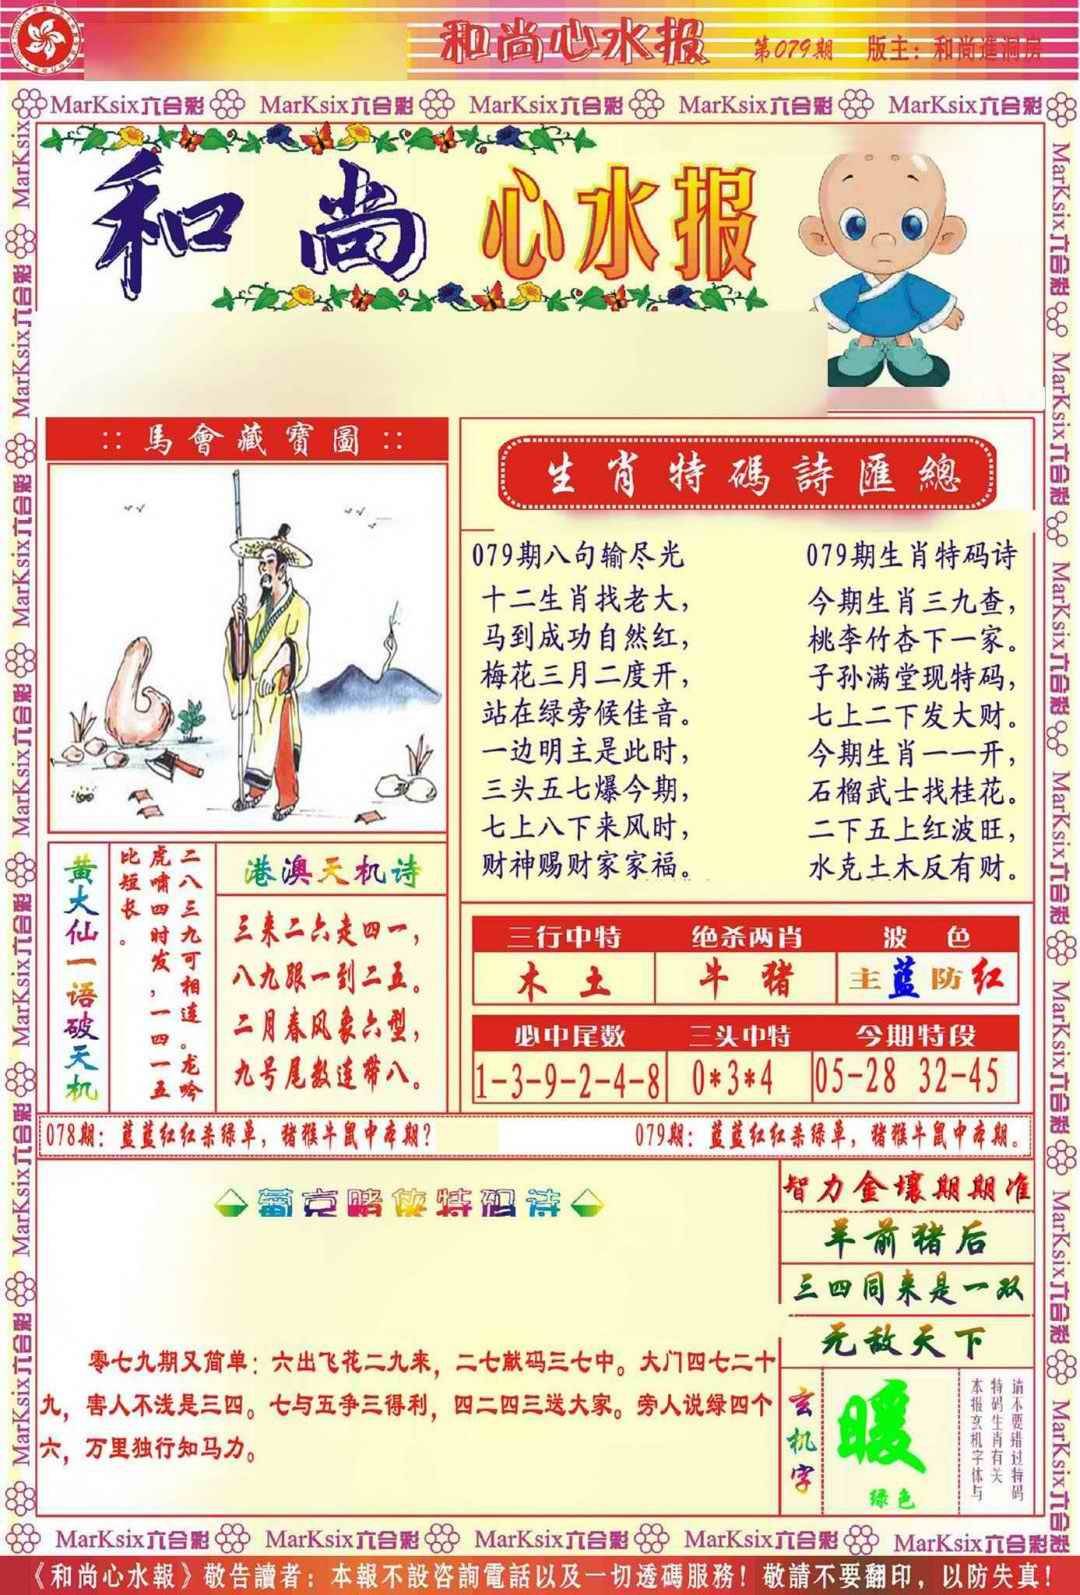 和尚心水报 第079期 版主：和尚進洞房
MarKsix六合彩 MarKsix六合彩 MarKsix六合彩 MarKsix六合彩 MarKsix六合彩
和尚心水报
::馬會藏寶圖::
生肖特碼詩匯總
079期八句输尽光
十二生肖找老大，
马到成功自然红，
梅花三月二度开，
站在绿旁候佳音。
一边明主是此时，
三头五七爆今期，
七上八下来风时，
财神赐财家家福。
079期生肖特码诗
今期生肖三九查，
桃李竹杏下一家。
子孙满堂现特码，
七上二下发大财。
今期生肖一一开，
石榴武士找桂花。
二下五上红波旺，
水克土木反有财。
黄大仙一语破天机
二八三九可相连。龙吟
虎啸四时发，一四一五
比短长。
港澳天机诗
三来二六走四一，
八九跟一到二五。
二月春风象六型，
九号尾数连带八。
三行中特 绝杀两肖 波色
木土 牛猪 主蓝防红
必中尾数 三头中特 今期特段
1-3-9-2-4-8 0*3*4 05-28 32-45
078期：蓝蓝红红杀绿单，猪猴牛鼠中本期？
079期：蓝蓝红红杀绿单，猪猴牛鼠中本期。
葡京赌侠特码诗
零七九期又简单：六出飞花二九来，二七献码三七中。大门四七二十
九，害人不浅是三四。七与五争三得利，四二四三送大家。旁人说绿四个
六，万里独行知马力。
智力金壤期期准
羊前猪后
三四同来是一双
无敌天下
玄机字
暖
绿色
请不要错过特码
特码生肖有关
本报玄机字体与
MarKsix六合彩 MarKsix六合彩 MarKsix六合彩 MarKsix六合彩 MarKsix六合彩
《和尚心水報》敬告讀者：本報不設咨詢電話以及一切透碼服務！敬請不要翻印，以防失真！